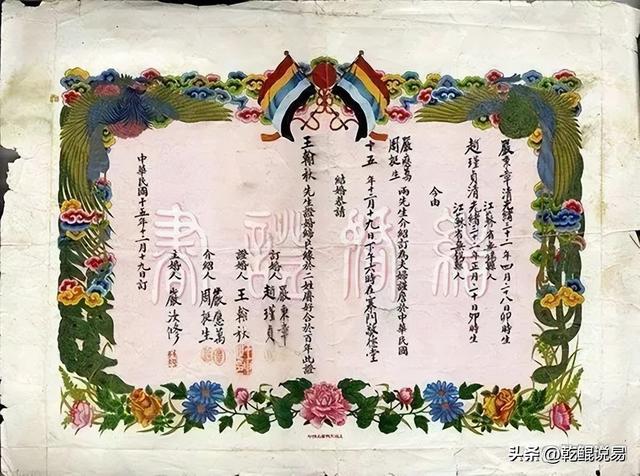 嚴東章清光緒二十一年四月二八日卯時生
江蘇省無錫縣人
趙瑾貞清光緒二十二年五月二十日卯時生
江蘇省無錫縣人
今由
嚴應萬
周挺生 兩先生介紹訂為夫婦謹詹於中華民國
十五年十二月十九日下午六時在門敬修堂
結婚恭請
王翰秋先生證婚良緣於二姓賡好合於百年此證
訂婚人 嚴東章
趙瑾貞
證婚人 王翰秋
介紹人 嚴應萬
周挺生
主婚人 嚴汝修
中華民國十五年十二月十九日訂
結婚證書
头条 @乾鲲说易